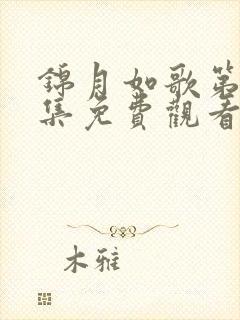 錦月如歌第
集免費觀看
木雅